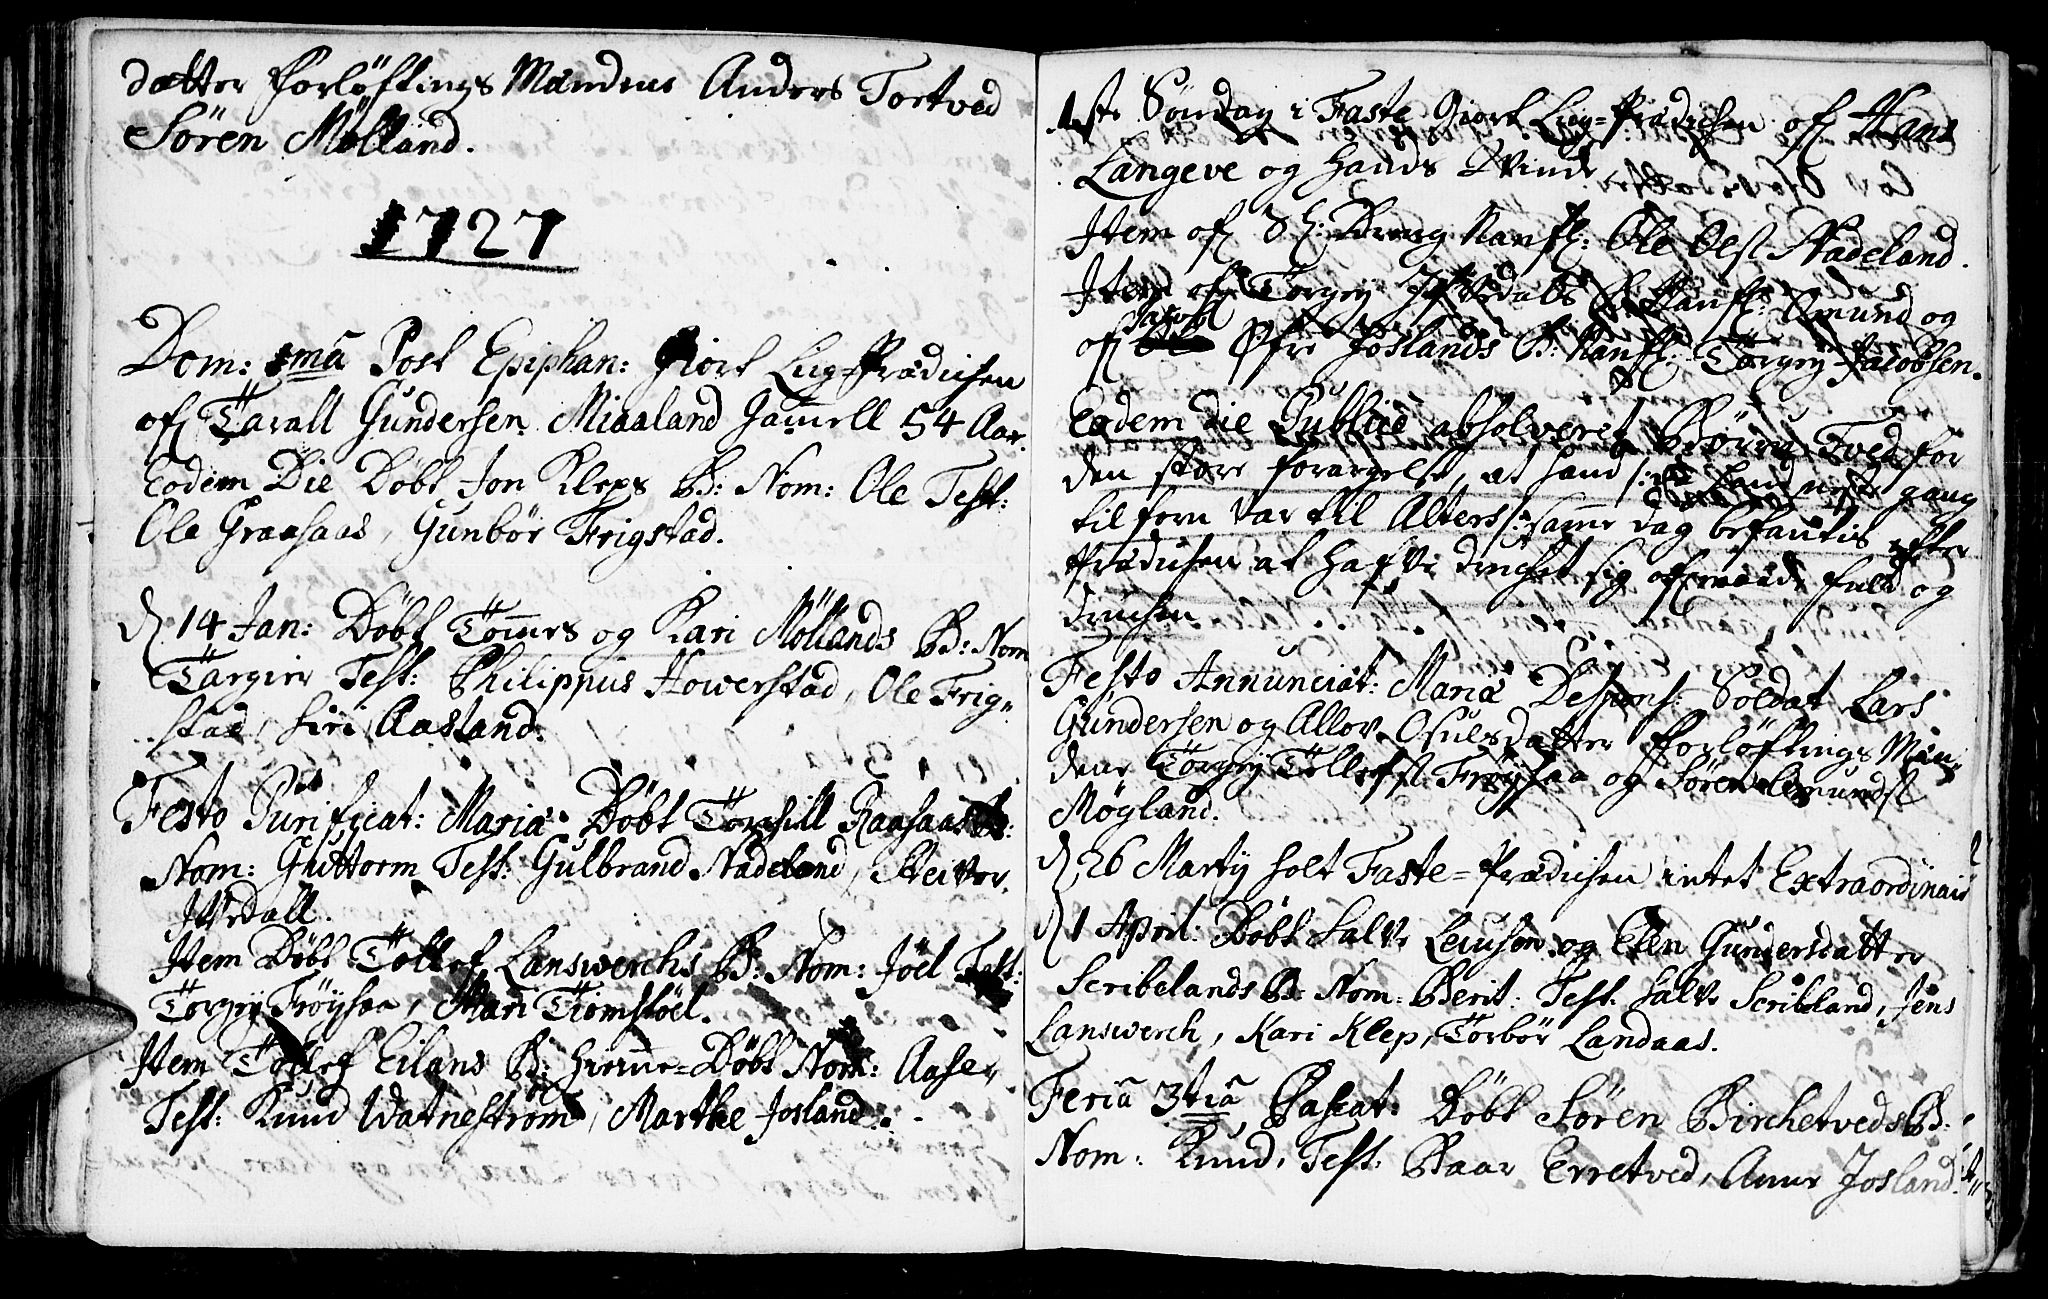 datter Forløftings Mændene Anders Tortved
Søren Mølland.
1727
Dom: 1ma Post Epiphan: Giort Liig-Prædichen
of Tarall Gundersen Miaaland Gamell 54 Aar.
Eodem Die Døbt Jon Kleps B: Nom: Ole Test:
Ole Graasaas, Gunbør Frigstad.
D 14 Jan: Døbt Tomes og Kari Møllands B: Nom
Targier Test: Philippus Howerstad, Ole Frig-
stad, Siri Aasland.
Festo Purificat: Mariæ Døbt Torchill Raasaas B:
Nom: Guttorm Test: Gulbrand Nadeland,
Ifverdall.
Item Døbt Tollef Lanswerchs B: Nom: Joel Test:
Torgey Frøysaa, Mari Tiomstøel.
Item Tollef Eilans B: Hieme-Døbt Nom: Aase
Test: Knud Watnestrøm, Marthe Josland.
1ste Søndag i Faste Giort Liig-Prædichen of Hans
Langeve og Hands Qvinde
Item of S: Dreng Nanfl: Ole Olsl Nadeland.
Item of Torgey Ifverdals B: Nanfl: Omund og
Jacob
of Øfre Joslands B: Nanfl: Torgey Jacobsen.
Eodem Die Publicè absolveret Børre Tved for
den store forargelse, at hand gang
tilforn var til Alters samme dag befantis efter
Prædichen at hafve druchet sig ofvermaade fuld og
druchen
Festo Annunciat: Mariæ Despons: Soldat Lars
Gundersen og Allov Osulsdatter Forløftings Mæn-
dene Torgey Tollefsl Frøysaa og Søren Omundsl
Møgland.
D 26 Martij holt Faste-Prædichen intet Extraordinair
D 1 April: Døbt Salve Leuson og Elen Gundersdatter
Scribelands B: Nom: Berit: Test: Salve Scribland, Jens
Lanswerch, Kari Klep, Torbør Landaas.
Feriâ 3tiâ Pascat: Døbt Søren Birchetveds B:
Nom: Knud, Test: Baar Erretved, Anne Josland.